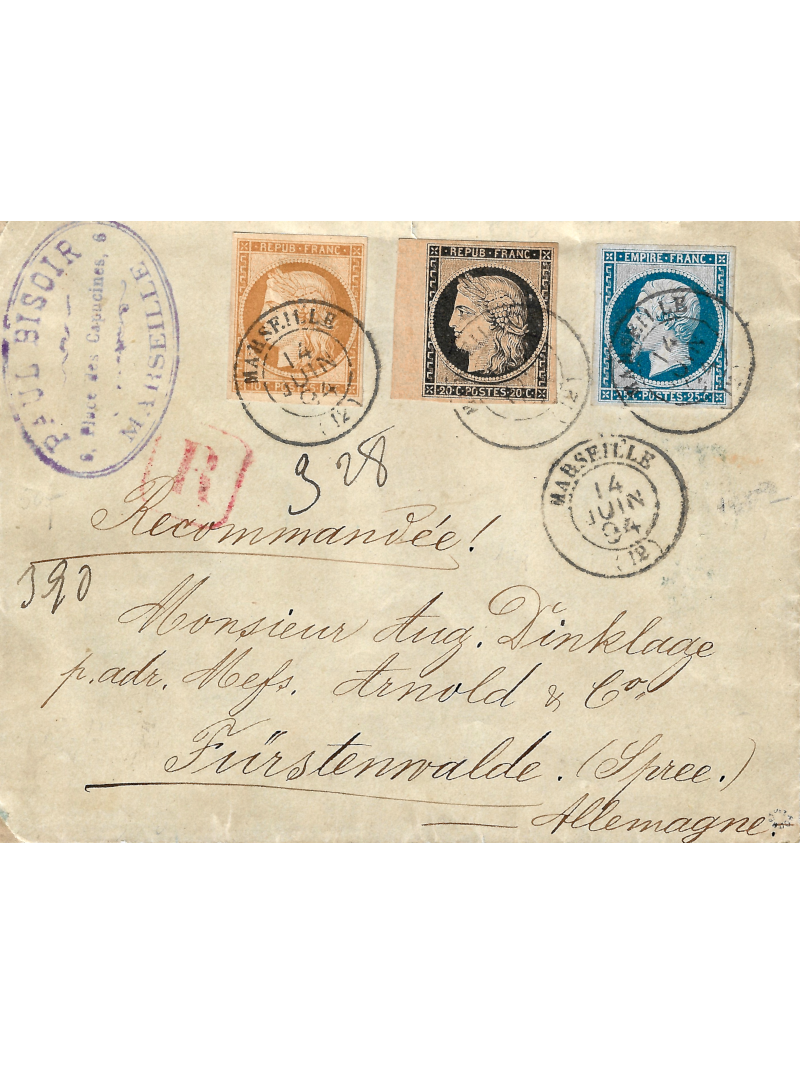 PAUL BISOIR
6, Place des Capucines, 6
MARSEILLE
REPUB·FRANC
POSTES
REPUB·FRANC·
20·C·POSTES·20·C·
EMPIRE·FRANC·
25·C·POSTES·25·C·
MARSEILLE
14
JUIN
94
(12)
MARSEILLE
14
(12)
MARSEILLE
14
JUIN
94
(12)
R
328
Recommandée!
390
Monsieur Aug. Dinklage
p. adr. Mess. Arnold & Co.
Fürstenwalde. (Spree.)
Allemagne.